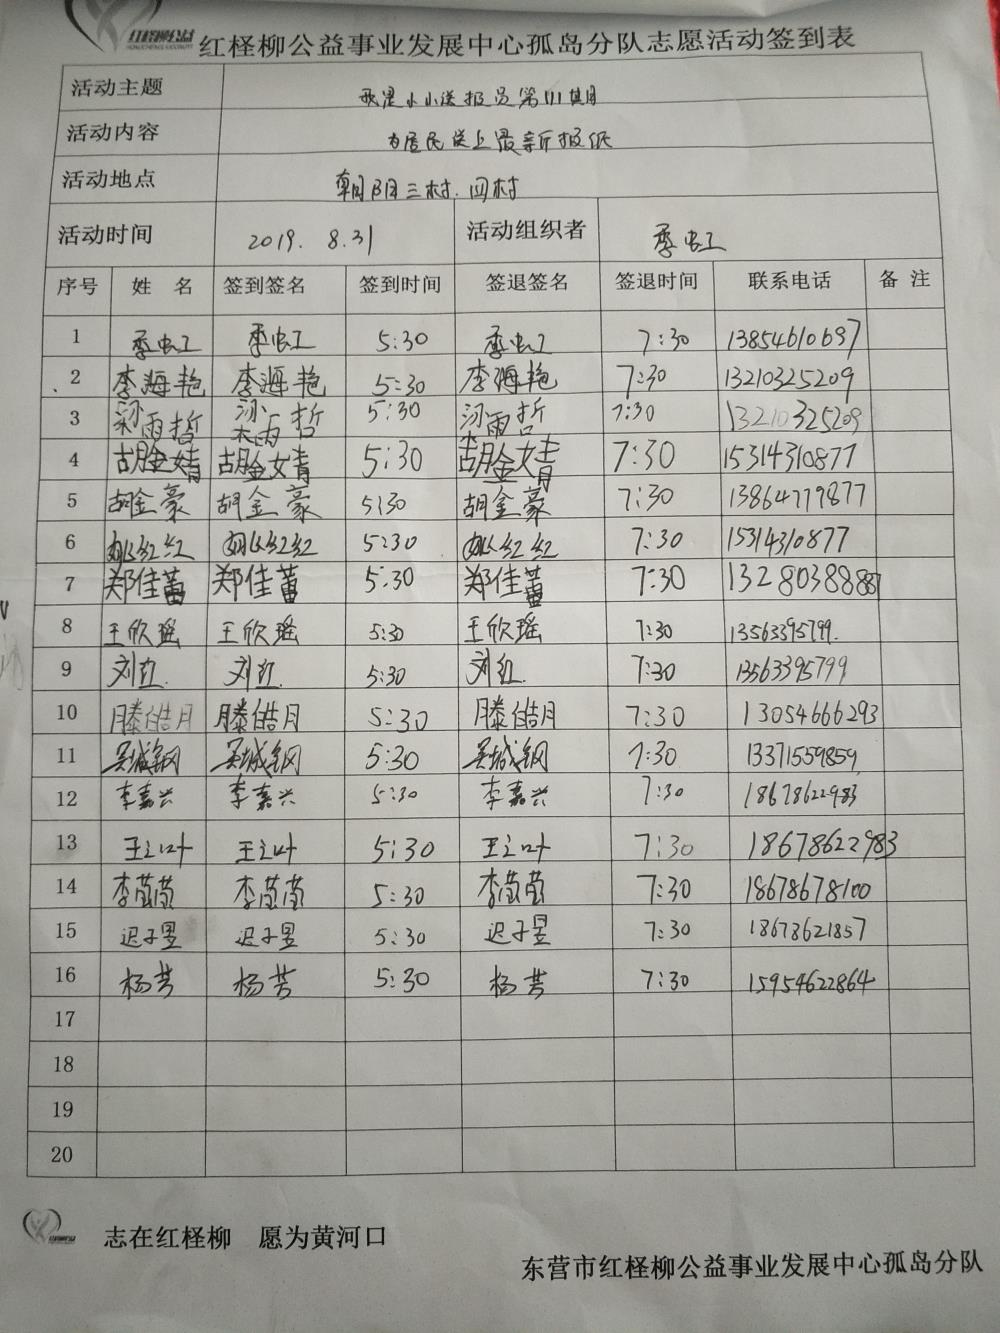 红柽柳公益
红柽柳公益事业发展中心孤岛分队志愿活动签到表
活动主题 我是小小送报员第111期
活动内容 为居民送上最新报纸
活动地点 朝阳三村.四村
活动时间 2019. 8.31 活动组织者 季虹
序号 姓 名 签到签名 签到时间 签退签名 签退时间 联系电话 备 注
1 季虹 季虹 5:30 季虹 7:30 13854610697
2 李海艳 李海艳 5:30 李海艳 7:30 13210325209
3 梁雨哲 梁雨哲 5:30 梁雨哲 7:30 13210325209
4 胡金婧 胡金婧 5:30 胡金婧 7:30 15314310877
5 胡金豪 胡金豪 5:30 胡金豪 7:30 13864779877
6 姚红红 姚红红 5:30 姚红红 7:30 15314310877
7 郑佳蕾 郑佳蕾 5:30 郑佳蕾 7:30 1328038888
8 王欣瑶 王欣瑶 5:30 王欣瑶 7:30 13563395799.
9 刘红. 刘红. 5:30 刘红. 7:30 13563395799
10 滕皓月 滕皓月 5:30 滕皓月 7:30 13054666293
11 吴城钢 吴城钢 5:30 吴城钢 7:30 13371559859
12 李嘉兴 李嘉兴 5:30 李嘉兴 7:30 18678622983
13 王之叶 王之叶 5:30 王之叶 7:30 18678622983
14 李莹莹 李莹莹 5:30 李莹莹 7:30 18678678100
15 迟子昱 迟子昱 5:30 迟子昱 7:30 18678621857
16 杨芳 杨芳 5:30 杨芳 7:30 15954622864
17
18
19
20
志在红柽柳 愿为黄河口
东营市红柽柳公益事业发展中心孤岛分队